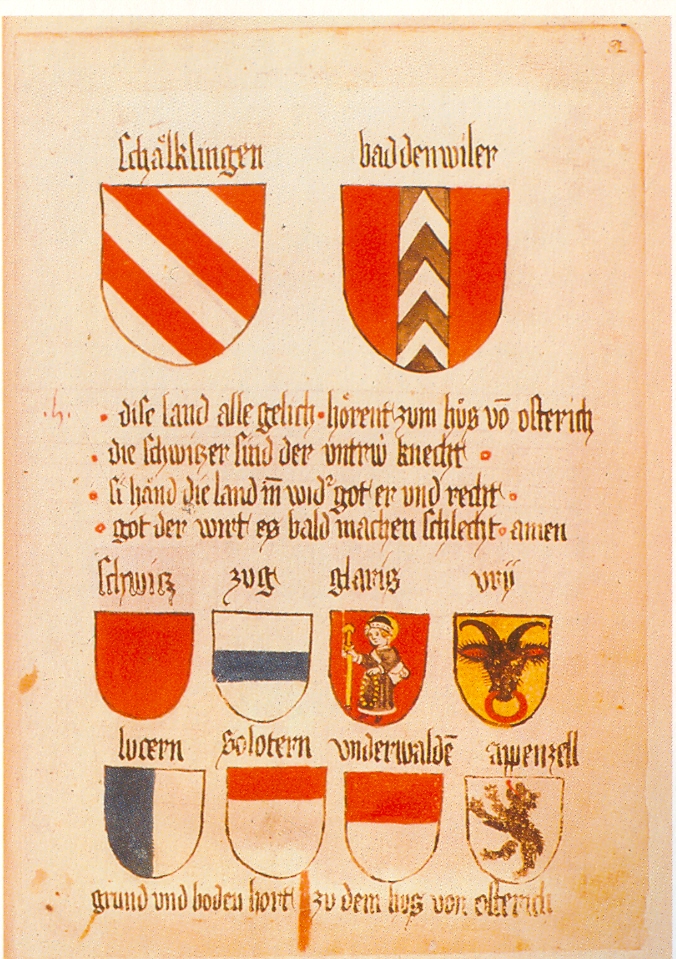 schålklingen baddenwiler
dise land alle gelich hörent zum hus vō osterich
die schwitzer sind der vntrẅ knecht
si hand die land m̄ wid' got er vnd recht
got der wirt es bald machen schlecht amen
schwitz zug glaris vrÿ
lucern Solotern vnderwaldē appenzell
grund vnd boden hort zu dem hus von osterich